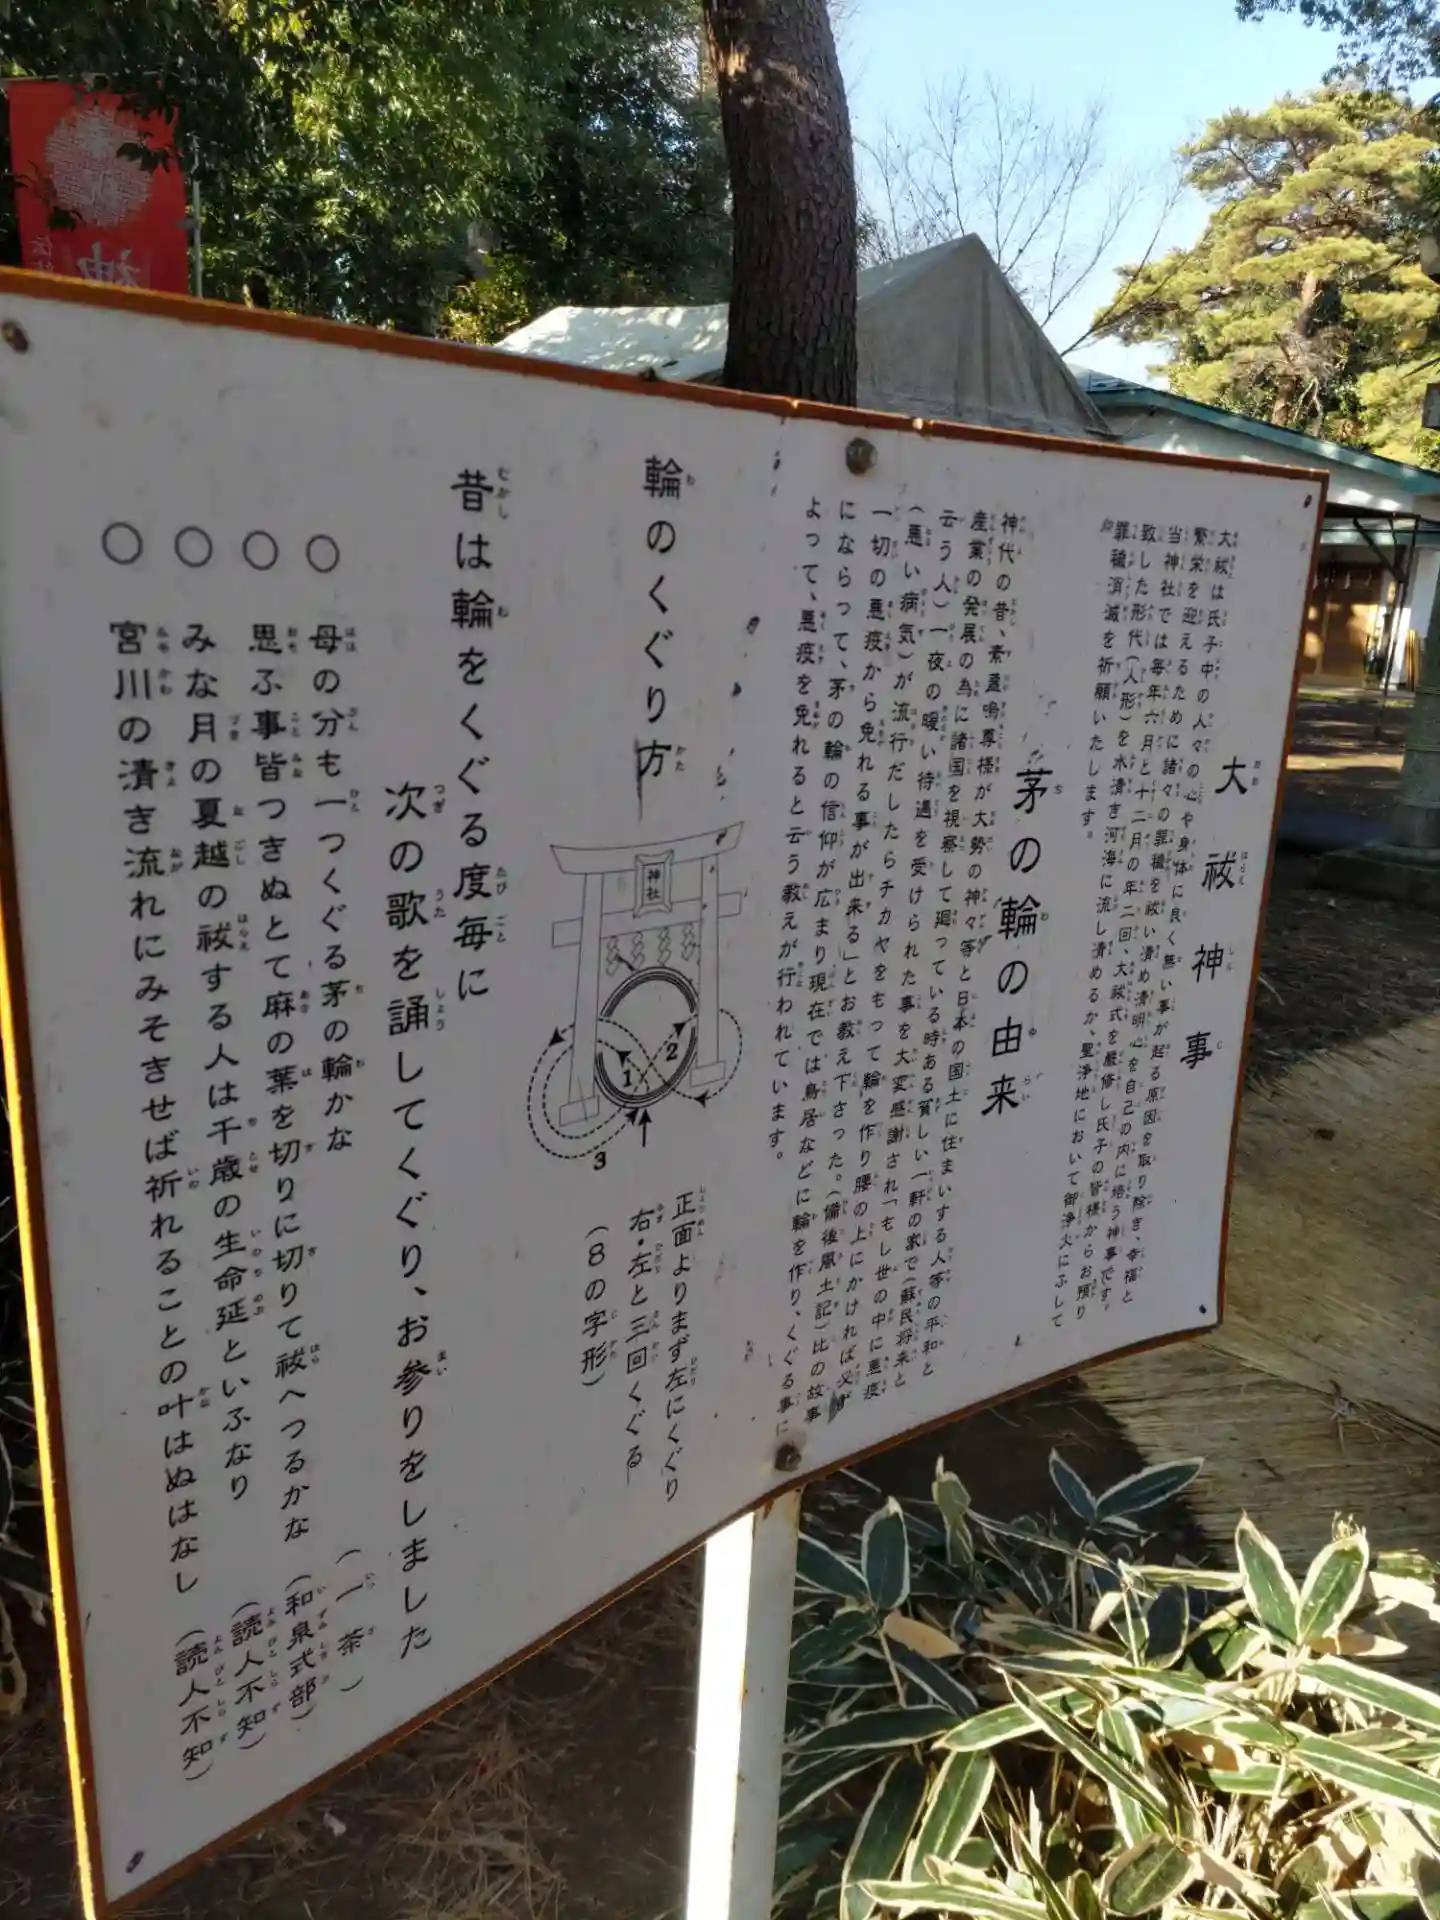 大祓神事
大祓は氏子中の人々の心や身体に良く無い事が起る原因を取り除き、幸福と
繁栄を迎えるために諸々の罪穢を祓い清め清明心を自己の内に培う神事です。
当神社では毎年六月と十二月の年二回、大祓式を厳修し氏子の皆様からお預り
致した形代(人形)を水清き河海に流し清めるか、聖浄地において御浄火にふして
罪穢消滅を祈願いたします。
茅の輪の由来
神代の昔、素盞嗚尊様が大勢の神々等と日本の国土に住まいする人等の平和と
産業の発展の為に諸国を視察して廻っている時ある貧しい一軒の家で(蘇民将来と
云う人)一夜の暖い待遇を受けられた事を大変感謝され「もし世の中に悪疫
(悪い病気)が流行だしたらチカヤをもって輪を作り腰の上にかければ必ず
一切の悪疫から免れる事が出来る」とお教え下さった。(備後風土記)比の故事
にならって、茅の輪の信仰が広まり現在では鳥居などに輪を作り、くぐる事に
よって、悪疫を免れると云う教えが行われています。
輪のくぐり方
神社
1
2
3
正面よりまず左にくぐり
右・左と三回くぐる
(8の字形)
昔は輪をくぐる度毎に
次の歌を誦してくぐり、お参りをしました
○ 母の分も一つくぐる茅の輪かな (一茶)
○ 思ふ事皆つきぬとて麻の葉を切りに切りて祓へつるかな (和泉式部)
○ みな月の夏越の祓する人は千歳の生命延といふなり (読人不知)
○ 宮川の清き流れにみそきせば祈れることの叶はぬはなし (読人不知)
神